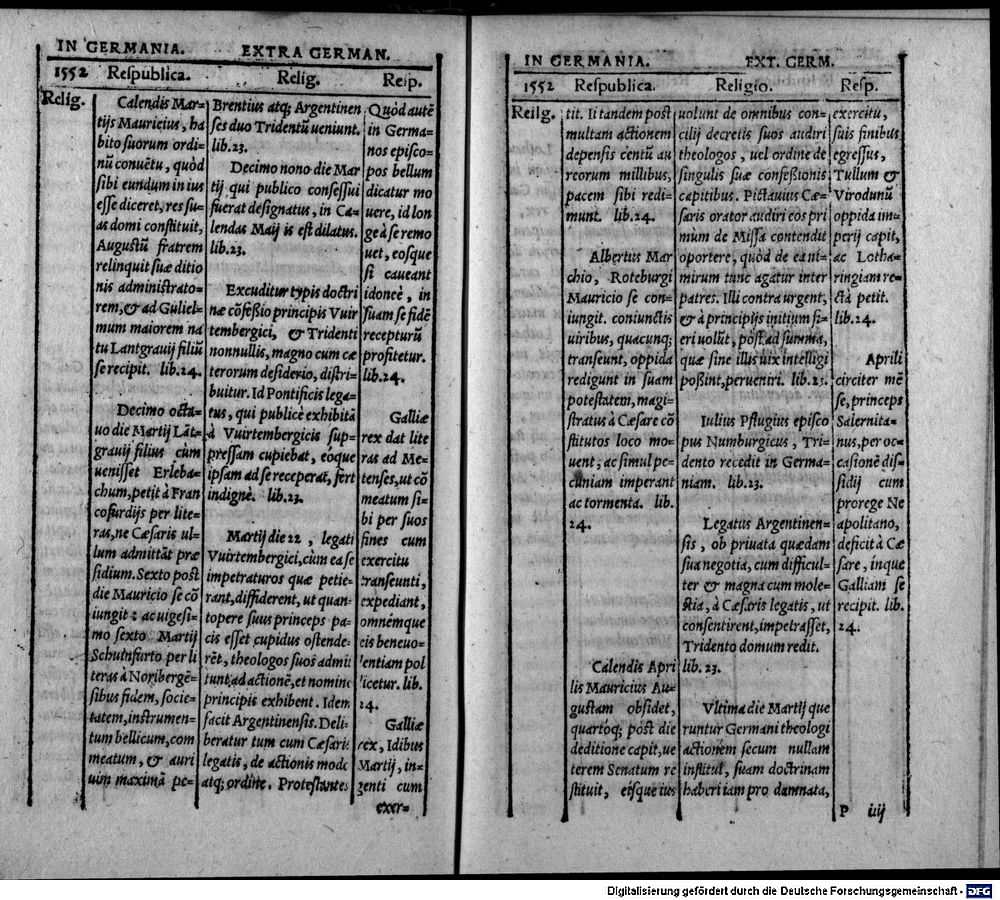 IN GERMANIA. EXTRA GERMAN.
1552 Respublica. Relig. Resp.
Relig.
Calendis Mar-
tijs Mauricius, ha
bito suorum ordi-
nũ conuẽtu, quòd
sibi eundum in ius
esse diceret, res su-
as domi constituit,
Augustũ fratrem
relinquit suæ ditio
nis administrato-
rem, & ad Guliel-
mum maiorem na
tu Lantgrauij filiũ
se recipit. lib. 24.
Decimo octa-
uo die Martij Lãt-
grauij filius cùm
uenisset Erleba-
chum, petit à Fran
cofurdijs per lite-
ras, ne Cæsaris ul-
lum admittãt præ
sidium. Sexto post
die Mauricio se cõ
iungit: ac uigesi-
mo sexto Martij
Schuinfurto per li
teras à Noribergẽ-
sibus fidem, socie-
tatem, instrumen-
tum bellicum, com
meatum, & auri
uim maximã pe-
Brentius atq; Argentinen
ses duo Tridentũ ueniunt.
lib. 23.
Decimo nono die Mar
tij qui publico consessui
fuerat designatus, in Ca-
lendas Maij is est dilatus.
lib. 23.
Excuditur typis doctri
næ cõfeßio principis Vuir
tembergici, & Tridenti
nonnullis, magno cum cæ
terorum desiderio, distri-
buitur. Id Pontificis lega-
tus, qui publicè exhibitã
à Vuirtembergicis sup-
pressam cupiebat, eoque
ipsam ad se receperat, fert
indignè. lib. 23.
Martij die 22, legati
Vuirtembergici, cùm ea se
impetraturos quæ petie-
rant, diffiderent, ut quan-
topere suus princeps pa-
cis esset cupidus ostende-
rẽt, theologos suos admit
tunt ad actionẽ, et nomine
principis exhibent. Idem
facit Argentinensis. Deli-
beratur tum cum Cæsaris
legatis, de actionis modo
atq; ordine. Protestantes
Quòd autẽ
in Germa-
nos episco-
pos bellum
dicatur mo
uere, id lon
gè à se remo
uet, eosque
si caueant
idoneè, in
suam se fidẽ
recepturũ
profitetur.
lib. 24.
Galliæ
rex dat lite
ras ad Me-
tenses, ut cõ
meatum si-
bi per suos
fines cum
exercitu
transeunti,
expediant,
omnemque
eis beneuo-
lentiam pol
licetur. lib.
24.
Galliæ
rex, Idibus
Martij, in-
genti cum
exer-
IN GERMANIA. EXT. GERM.
1552 Respublica. Religio. Resp.
Reilg.
tit. Ii tandem post
multam actionem
depensis centũ au
reorum millibus,
pacem sibi redi-
munt. lib. 24.
Albertus Mar
chio, Roteburgi
Mauricio se con-
iungit. coniunctis
uiribus, quacunq;
transeunt, oppida
redigunt in suam
potestatem, magi-
stratus à Cæsare cõ
stitutos loco mo-
uent; ac simul pe-
cuniam imperant
ac tormenta. lib.
24.
Calendis Apri
lis Mauricius Au-
gustam obsidet,
quartoq; pòst die
deditione capit, ue
terem Senatum re
stituit, eisque ius
uolunt de omnibus con-
cilij decretis suos audiri
theologos, uel ordine de
singulis suæ confeßionis
capitibus. Pictauius Cæ-
saris orator audiri eos pri
mùm de Missa contendit
oportere, quòd de ea ni-
mirum tunc agatur inter
patres. Illi contrà urgent,
& à principijs initium fi-
eri uolũt, pòst ad summa,
quæ sine illis uix intelligi
poßint, perueniri. lib. 23.
Iulius Pflugius episco
pus Numburgicus, Tri-
dento recedit in Germa-
niam. lib. 23.
Legatus Argentinen-
sis, ob priuata quædam
sua negotia, cum difficul-
ter & magna cum mole-
stia, à Cæsaris legatis, ut
consentirent, impetrasset,
Tridento domum redit.
lib. 23.
Vltima die Martij que
runtur Germani theologi
actionem secum nullam
institui, suam doctrinam
haberi iam pro damnata,
exercitu,
suis finibus
egressus,
Tullum &
Virodunũ
oppida im-
perij capit,
ac Lotha-
ringiam re-
ctà petit.
lib. 24.
Aprili
circiter mẽ
se, princeps
Salernita-
nus, per oc-
casionẽ dis-
sidij cum
prorege Ne
apolitano,
deficit à Cæ
sare, inque
Galliam se
recipit. lib.
24.
P iiij
Digitalisierung gefördert durch die Deutsche Forschungsgemeinschaft - DFG